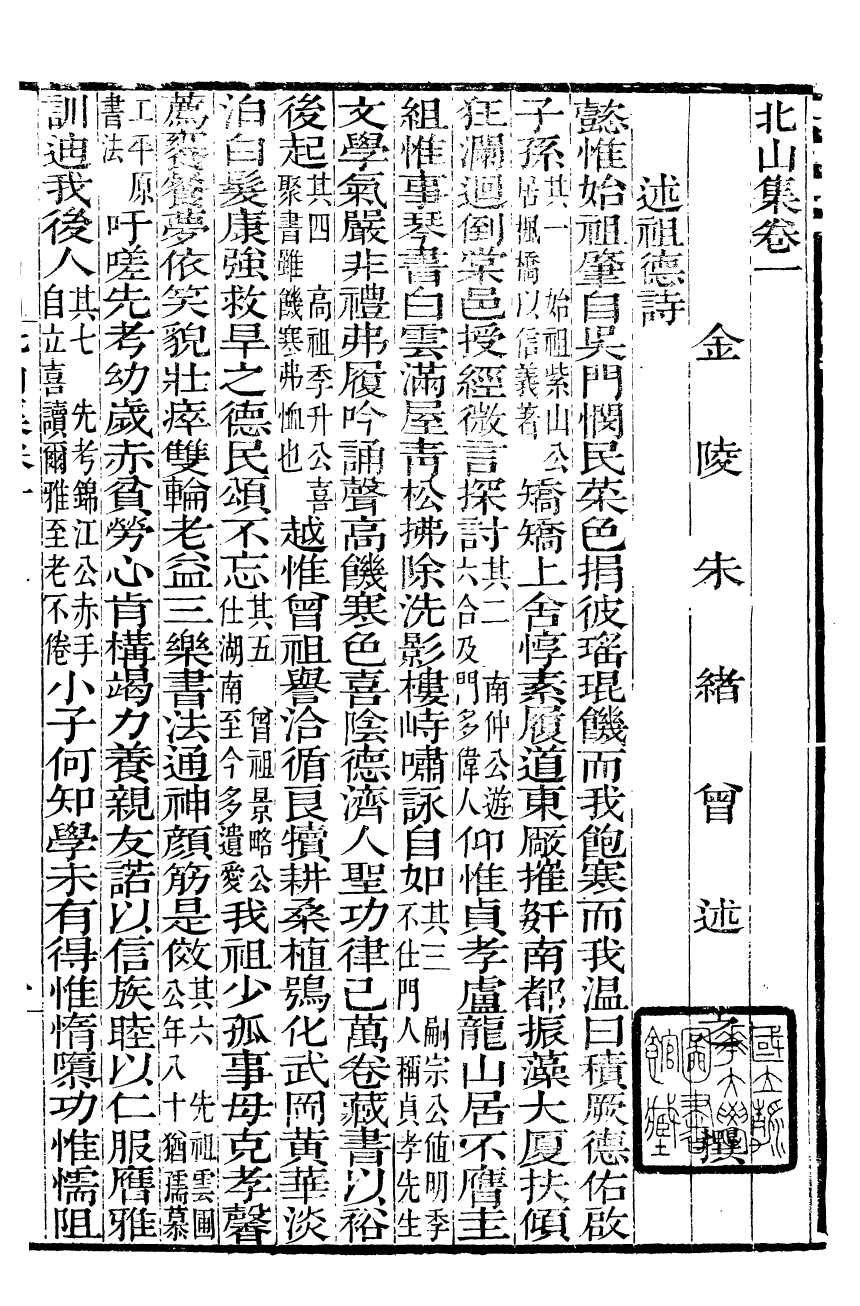 北山集卷一
金陵朱緒曾述之撰
述祖德詩
懿惟始祖肇自吳門憫民菜色捐彼瑤琨饑而我飽寒而我温曰積厥德佑啟
子孫其一 始祖紫山公居楓橋以信義著 矯矯上舍惇素履道東厰摧奸南都振藻大厦扶傾
狂瀾迴倒棠邑授經微言探討其二 南仲公遊六合及門多偉人 仰惟貞孝盧龍山居不膺圭
組惟事琴書白雲滿屋靑松拂除洗影樓峙嘯詠自如其三 嗣宗公値明季不仕門人稱貞孝先生
文學氣嚴非禮弗履吟誦聲高饑寒色喜陰德濟人聖功律己萬卷藏書以裕
後起其四 高祖季升公喜聚書雖饑寒弗恤也 越惟曾祖譽洽循良犢耕桑植鴞化武岡黃華淡
泊白髮康強救旱之德民頌不忘其五 曾祖景略公仕湖南至今多遺愛 我祖少孤事母克孝馨
薦饔飱夢依笑貌壯瘁雙輪老益三樂書法通神顏筋是倣其六 先祖雲圃公年八十猶孺慕
工平原書法 吁嗟先考幼歲赤貧勞心肯構竭力養親友諾以信族睦以仁服膺雅
訓迪我後人其七 先考錦江公赤手自立喜讀爾雅至老不倦 小子何知學未有得惟惰隳功惟懦阻